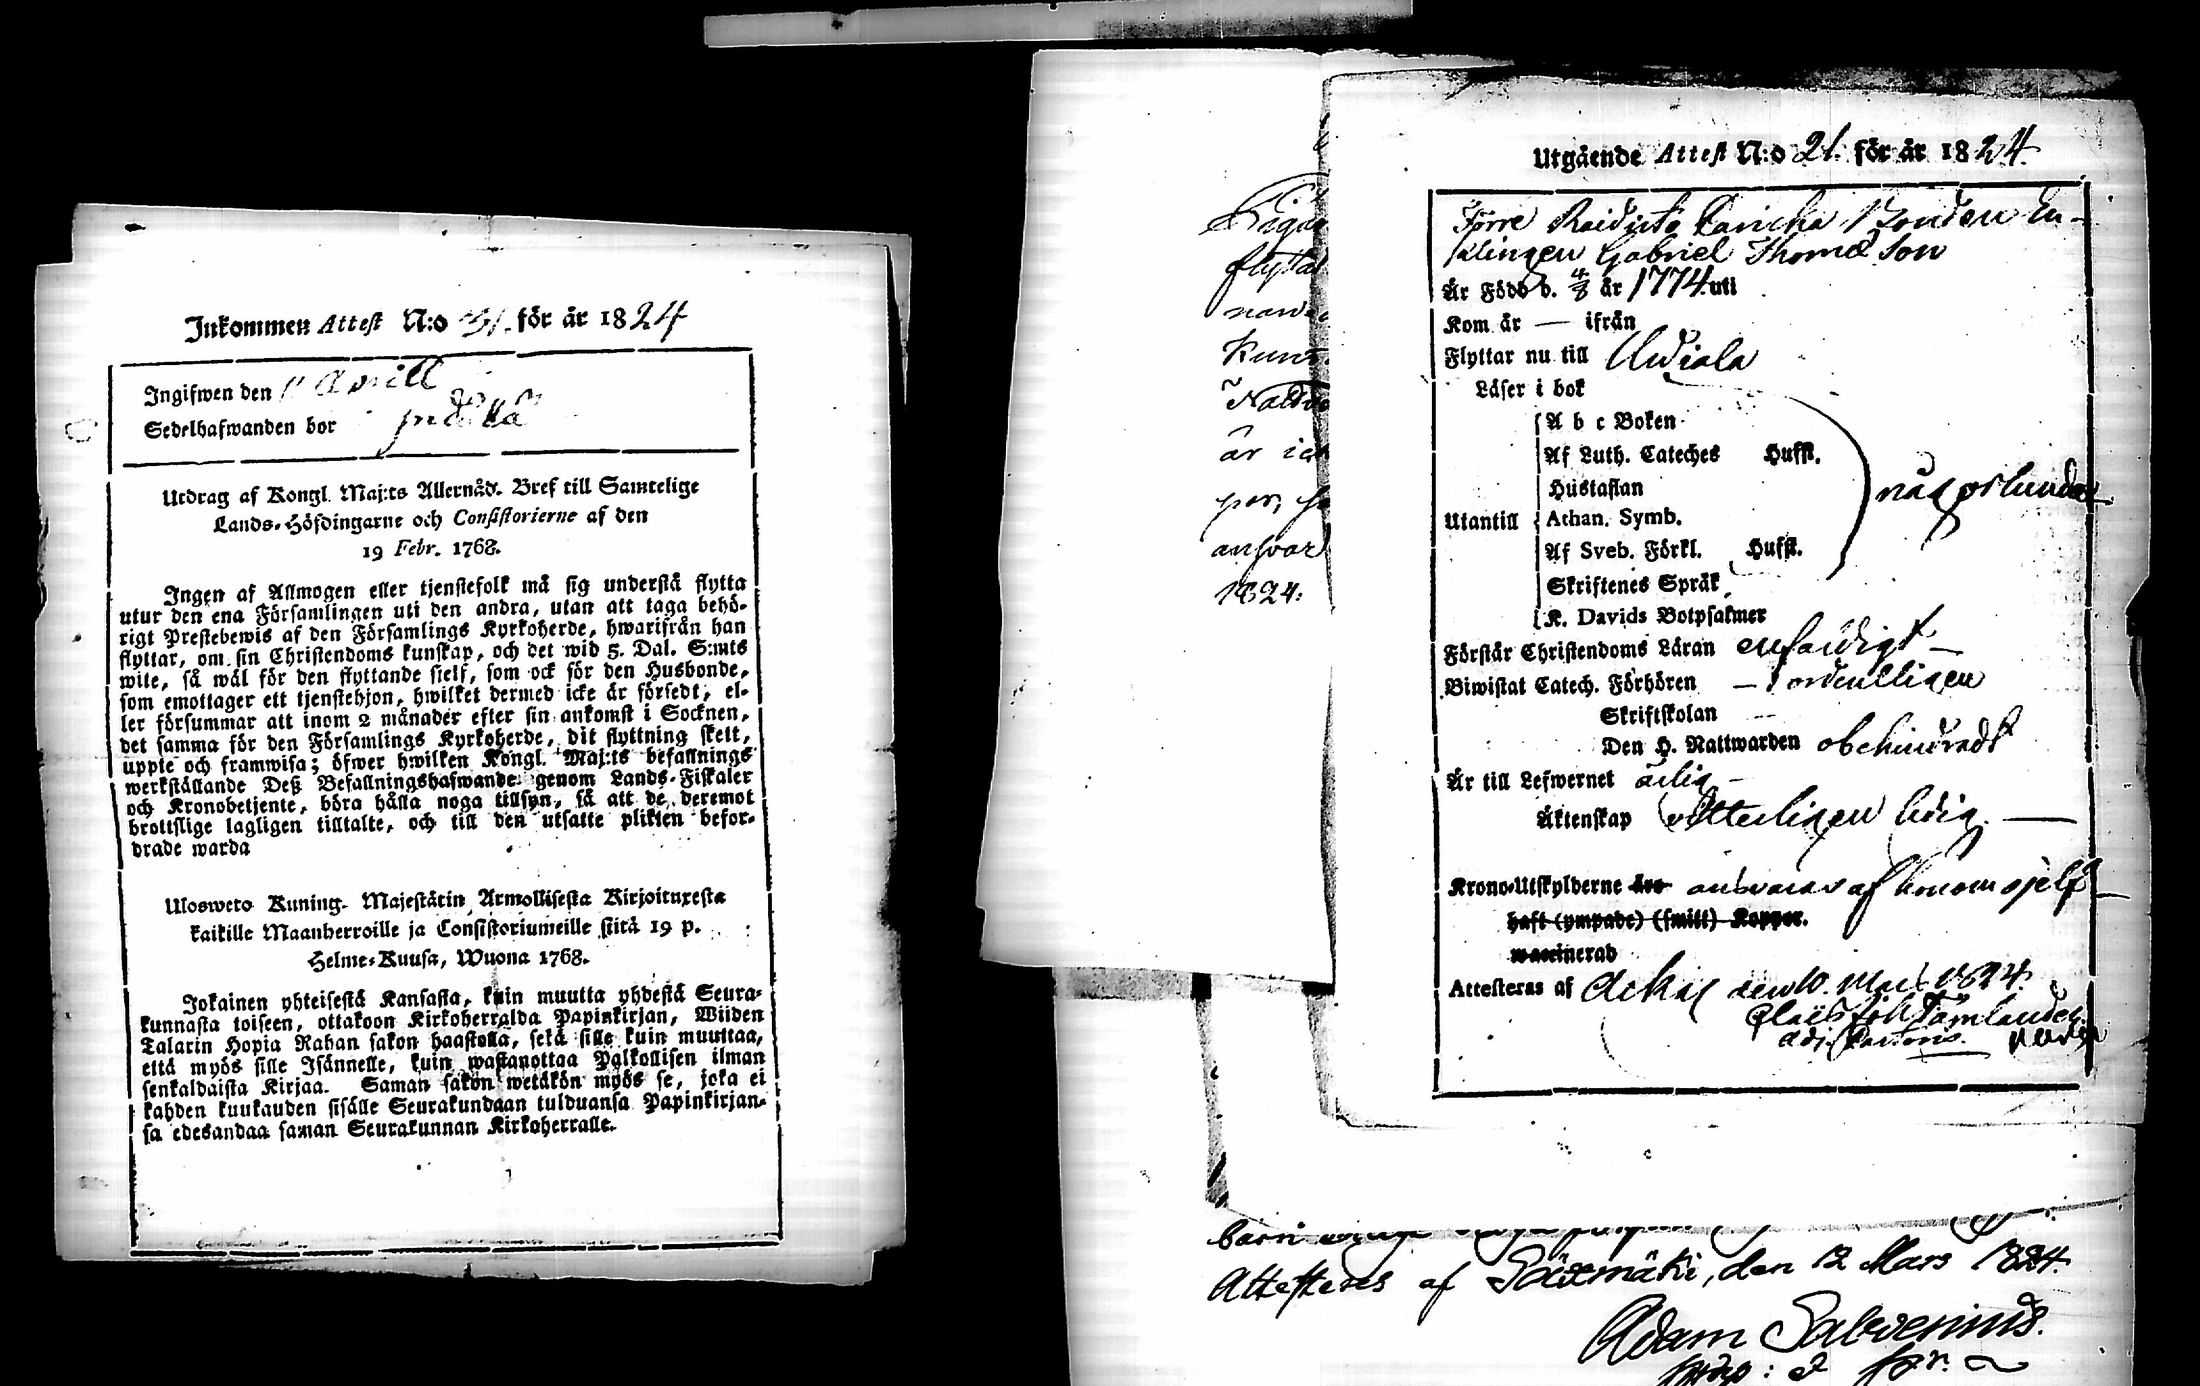 Inkommen Attest N:o 31. för år 1824
Ingifwen den 1 Aprill
Sedelhafwanden bor
Utdrag af Kongl. Maj:ts Allernåd. Bref till Samtelige
Lands-Höfdingarne och Consistorierne af den
19 Febr. 1768.
Ingen af Allmogen eller tjenstefolk må sig understå flytta
utur den ena Församlingen uti den andra, utan att taga behö-
rigt Prestebewis af den Församlings Kyrkoherde, hwarifrån han
flyttar, om sin Christendoms kunskap, och det wid 5. Dal. S:mts
wite, så wäl för den flyttande sielf, som ock för den Husbonde,
som emottager ett tjenstehjon, hwilket dermed icke är försedt, el-
ler försummar att inom 2 månader efter sin ankomst i Socknen,
det samma för den Församlings Kyrkoherde, dit flyttning skelt,
uppte och framwisa; öfwer hwilken Kongl. Maj:ts befallnings
werkställande Deß Befallningshafwande genom Lands-Fiskaler
och Kronobetjente, böra hålla noga tillsyn, så att de deremot
brottslige lagligen tilltalte, och till den utsatte plikten befor-
drade warda
Ulosweto Kuning. Majestätin Armollisesta Kirjoituxesta
kaikille Maanherroille ja Consistoriumeille siitä 19 p.
Helme-Kuusa, Wuona 1768.
Jokainen yhteisestä Kansasta, kuin muutta yhdestä Seura-
kunnasta toiseen, ottakoon Kirkoherralda Papinkirjan, Wiiden
Talarin Hopia Rahan sakon haastolla, sekä sille kuin muuttaa,
että myös sille Isännelle, kuin wastanottaa Palkollisen ilman
senkaldaista Kirjaa. Saman sakon wetäkön myös se, joka ei
kahden kuukauden sisälle Seurakundaan tulduansa Papinkirjan-
sa edesandaa saman Seurakunnan Kirkoherralle.
flytta
Kuns
är ick
answar
1824:
Utgående Attest N:o 21. för år 1824.
Förre Raidisto Bonden En-
klingen Gabriel Thomæ Son
Är Född d. 4/8 år 1774. uti
Kom år — ifrån
Flyttar nu till Urdiala
Läser i bok
A b c Boken
Af Luth. Cateches Hufst.
Hustaflan
Utantill Athan. Symb.
någorlunda
Af Sveb. Förkl. Hufst.
Skriftenes Språk
K. Davids Botpsalmer
Förstår Christendoms Läran enfaldigt —
Biwistat Catech. Förhören — ordentligen
Skriftskolan
Den H. Nattwarden obehindradt
Är till Lefwernet ärlig —
Äktenskap witterligen ledig. —
Krono-Utskylderne äro answaras af honom sjelf —
haft (ympade) (smitt) Koppor.
waccinerad
Attesteras af Ackas den 10. Mars 1824.
Adj. Pastoris
barn
Attesteres af Sääxmäki, den 12 Mars 1824.
Adam Salvenius.